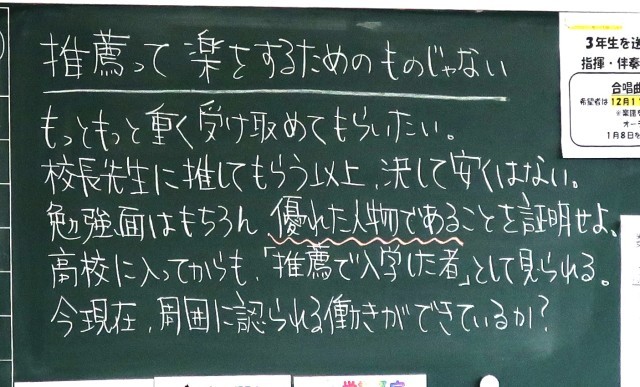 推薦って楽をするためのものじゃない
もっともっと重く受け取めてもらいたい。
校長先生に推してもらう以上、決して安くはない。
勉強面はもちろん、優れた人物であることを証明せよ、
高校に入ってからも、「推薦で入学した者」として見られる。
今現在、周囲に認られる働きができているか?
3年生を送
指揮・伴奏
合唱曲
希望者は12月1
1月8日を